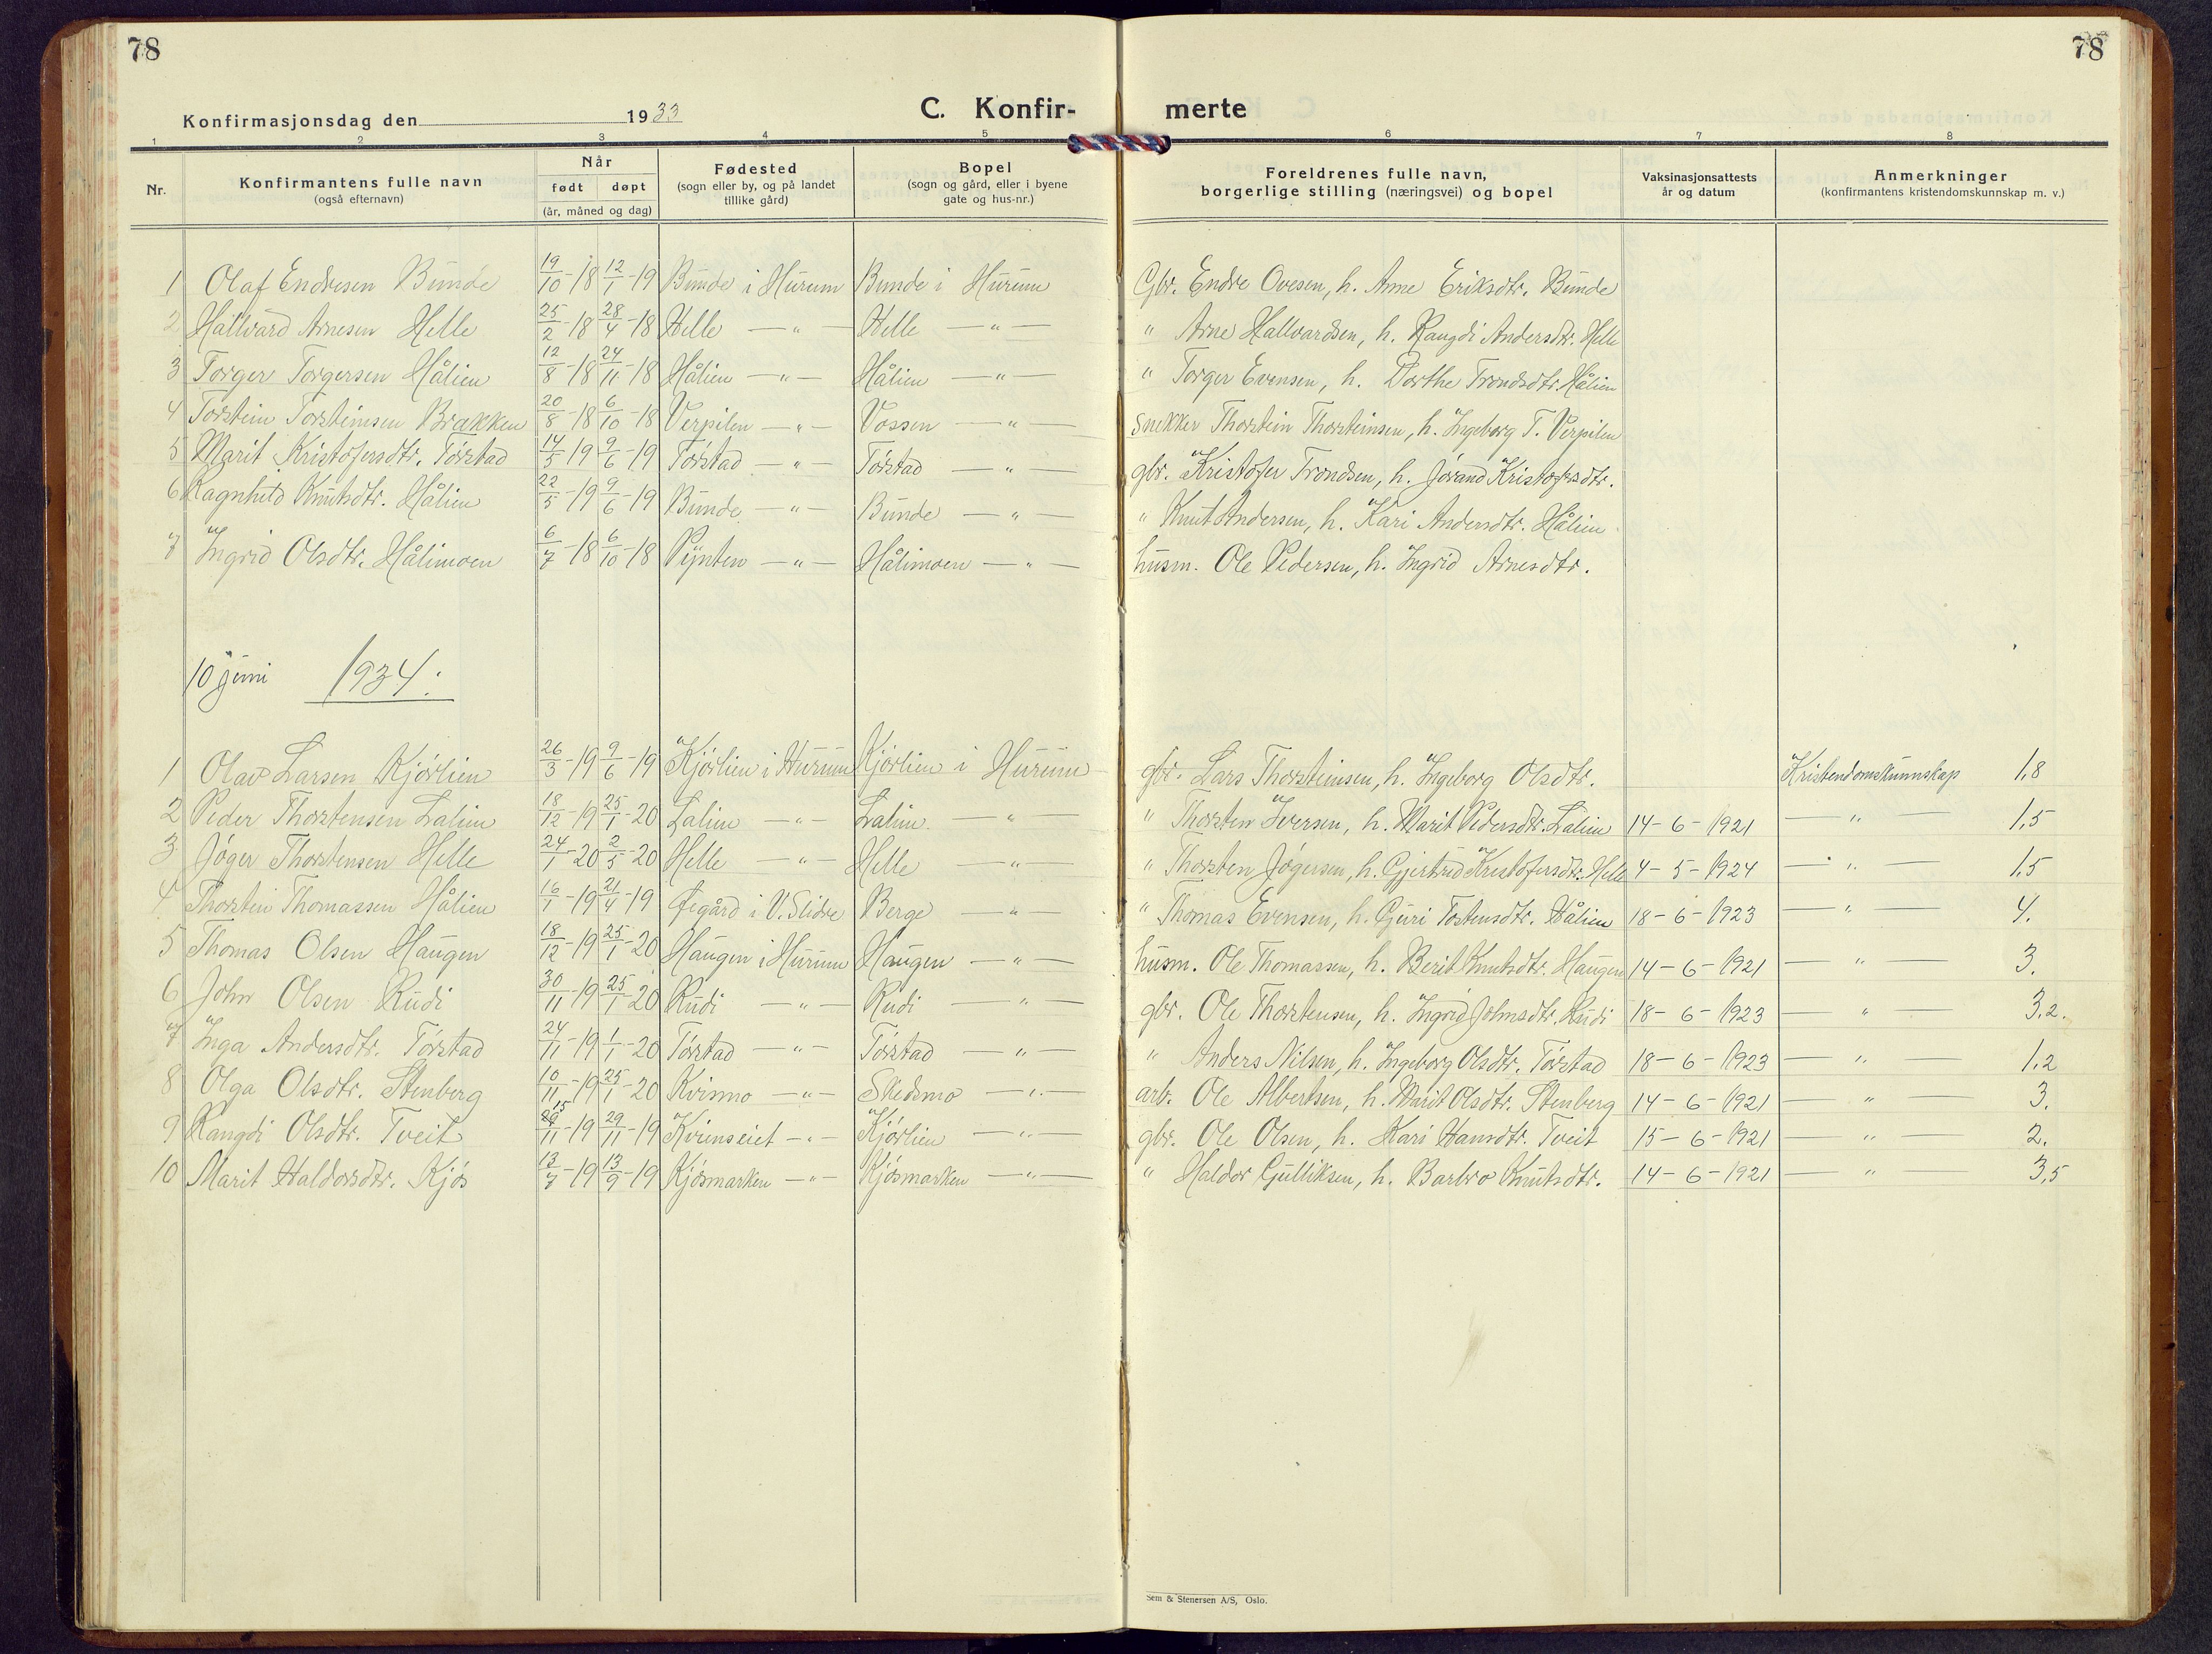 78
78
Konfirmasjonsdag den 1933
C. Konfir-
merte
1 2 3 4 5 6 7 8
Nr.
Konfirmantens fulle navn
(også efternavn)
Når
født døpt
(år, måned og dag)
Fødested
(sogn eller by, og på landet
tillike gård)
Bopel
(sogn og gård, eller i byene
gate og hus-nr.)
Foreldrenes fulle navn,
borgerlige stilling (næringsvei) og bopel
Vaksinasjonsattests
år og datum
Anmerkninger
(konfirmantens kristendomskunnskap m. v.)
1 Olaf Endresen Bunde 19/10-18 12/1-19 Bunde i Hurum Bunde i Hurum Gbr. Endre Ovesen, h. Anne Eriksdtr. Bunde
2 Hallvard Arnesen Helle 25/2-18 28/4-18 Helle — " — Helle — " — " Arne Hallvardsen, h. Rangdi Andersdtr. Helle
3 Torger Torgersen Hålien 12/8-18 24/11-18 Hålien — " — Hålien — " — " Torger Evensen, h. Dorthe Trondsdtr. Hålien
4 Torstein Torsteinsen Brækken 20/8-18 6/10-18 Verpilen — " — Vossen — " — Snekker Thorstein Thorsteinsen, h. Ingeborg T. Verpilen
5 Marit Kristofersdtr. Törstad 14/5-19 9/6-19 Törstad — " — Törstad — " — gbr. Kristofer Trondsen, h. Jörand Kristofersdtr.
6 Ragnhild Knutsdtr. Hålien 22/5-19 9/6-19 Bunde — " — Bunde — " — " Knut Andersen, h. Kari Andersdtr. Hålien
7 Ingrid Olsdtr. Hålimoen 6/7-18 6/10-18 Pynten — " — Hålimoen — " — husm. Ole Pedersen, h. Ingrid Arnesdtr.
10 juni 1934:
1 Olav Larsen Kjörlien 26/3-19 9/6-19 Kjörlien i Hurum Kjörlien i Hurum gbr. Lars Thorsteinsen, h. Ingeborg Olsdtr. Kristendomskunnskap 1,8
2 Peder Thorstensen Lalim 18/12-19 25/1-20 Lalim — " — Lalim — " — " Thorsten Iversen, h. Marit Pedersdtr. Lalim 14-6-1921 — " — 1,5
3 Jöger Thorstensen Helle 24/1-20 2/5-20 Helle — " — Helle — " — " Thorsten Jögersen, h. Gjertrud Kristofersdtr. Helle 4-5-1924 — " — 1,5
4 Thorstein Thomassen Hålien 16/1-19 21/4-19 Øegård i V. Slidre Berge — " — " Thomas Evensen, h. Guri Tostensdtr. Hålien 18-6-1923 — " — 4.
5 Thomas Olsen Haugen 18/12-19 25/1-20 Haugen i Hurum Haugen — " — husm. Ole Thomassen, h. Berit Knutsdtr. Haugen 14-6-1921 — " — 3.
6 John Olsen Rudi 30/11-19 25/1-20 Rudi — " — Rudi — " — gbr. Ole Thorstensen, h. Ingrid Johnsdtr. Rudi 18-6-1923 — " — 3,2.
7 Inga Andersdtr. Törstad 24/11-19 1/1-20 Törstad — " — Törstad — " — " Anders Nilsen, h. Ingeborg Olsdtr. Törstad 18-6-1923 — " — 1,2
8 Olga Olsdtr. Stenberg 10/11-19 25/1-20 Kvismo — " — Skedsmo — " — arb. Ole Albertsen, h. Marit Olsdtr. Stenberg 14-6-1921 — " — 3.
9 Rangdi Olsdtr. Tveit 15/11-19 29/11-19 Kvienseiet — " — Kjörlien — " — gbr. Ole Olsen, h. Kari Hansdtr. Tveit 15-6-1921 — " — 2.
10 Marit Haldorsdtr. Kjös 13/7-19 13/9-19 Kjösmarken — " — Kjösmarken — " — " Haldor Gulliksen, h. Barbro Knutsdtr. 14-6-1921 — " — 3,5
Sem & Stenersen A/S, Oslo.